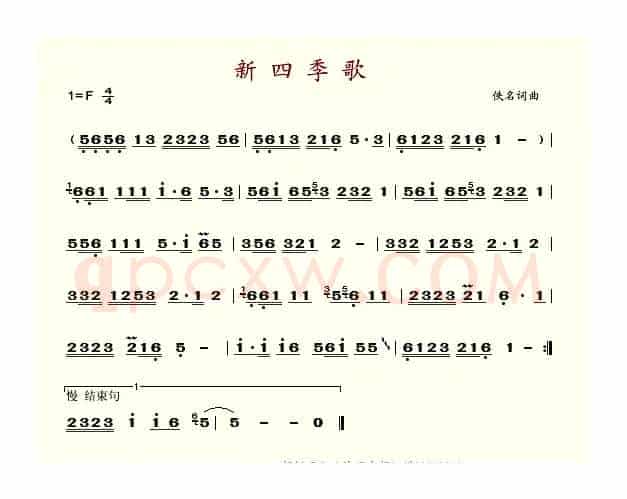 新四季歌
1=F 4/4
佚名词曲
(5656 13 2323 56|5613 216 5·3|6123 216 1 -)|
1661 111 i·6 5·3|56i 6553 232 1|56i 6553 232 1|
556 111 5·i 65|356 321 2 -|332 1253 2·1 2|
qpcxw.COM
332 1253 2·1 2|1661 11 3556 11|2323 21 6·1|
2323 216 5 -|i·i i6 56i 55|6123 216 1 -:||
1
慢 结束句
2323 i i6 65|5 - - 0||